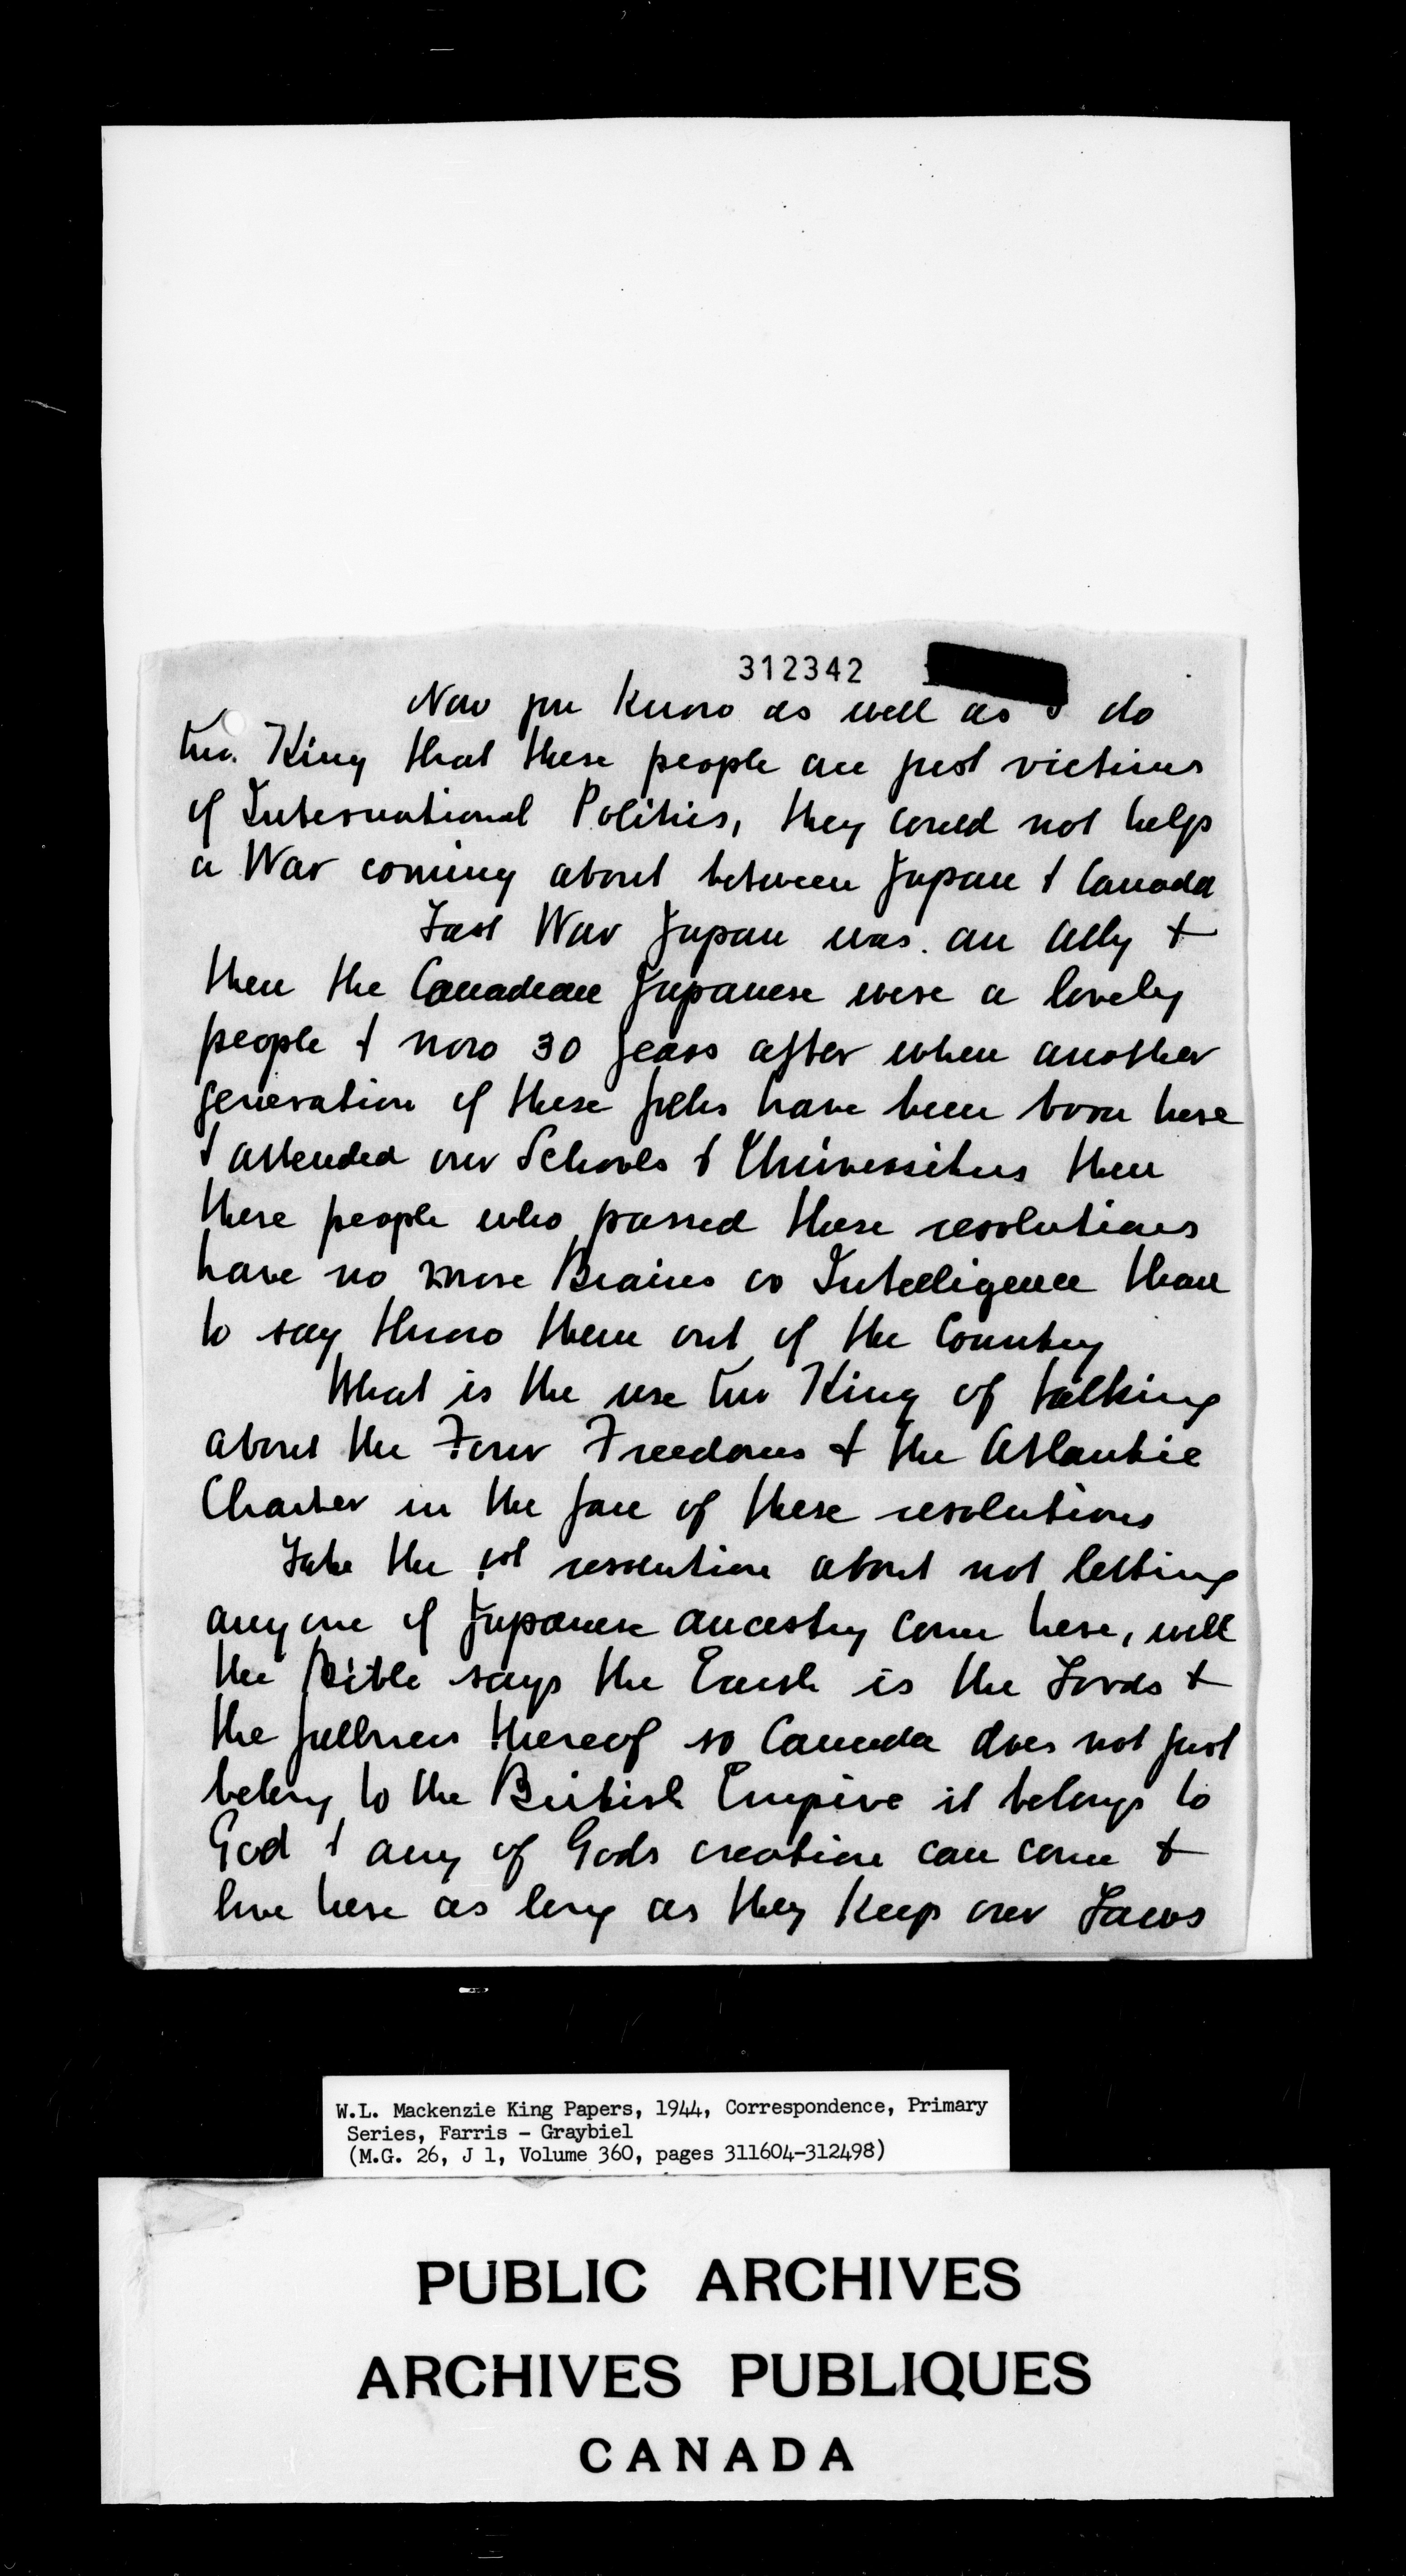 312342
Now you Know as well as I do
Mr. King that these people are just victims
of International Politics, they could not help
a War coming about between Japan & Canada
Last War Japan was. an Ally &
then the Canadian Japanese were a lovely
people & now 30 years after when another
generation of these folks have been born here
& attended our Schools & Universities then
these people who passed these resolutions
have no more Brains or Intelligence than
to say throw them out of the Country
What is the use Mr King of talking
about the Four Freedoms & the Atlantic
Charter in the face of these resolutions
Take the 1st resolution about not letting
anyone of Japanese ancestry come here, well
the Bible says the Earth is the Lords &
the fullness thereof so Canada does not just
belong to the British Empire it belongs to
God & any of Gods creation can come &
live here as long as they Keep our Laws
W.L. Mackenzie King Papers, 1944, Correspondence, Primary
Series, Farris - Graybiel
(M.G. 26, J 1, Volume 360, pages 311604-312498)
PUBLIC ARCHIVES
ARCHIVES PUBLIQUES
CANADA